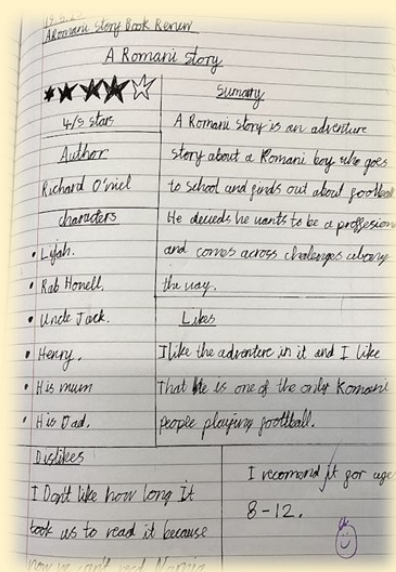 A Romani Story Book Review
A Romani Story
4/5 stars
Author
Richard O'niel
characters
• Lijah.
• Rab Howell.
• Uncle Jack.
• Henry.
• His mum
• His Dad.
Sumary
A Romani story is an adventure
story about a Romani boy who goes
to school and finds out about football
He decieds he wants to be a proffesion
and comes across challenges along
the way.
Likes
I like the adventure in it and I like
That He is one of the only Romani
people playing foottball.
Dislikes
I Don't like how long It
took us to read it because
now we can't read Narnia
I recomend it for age
8-12.